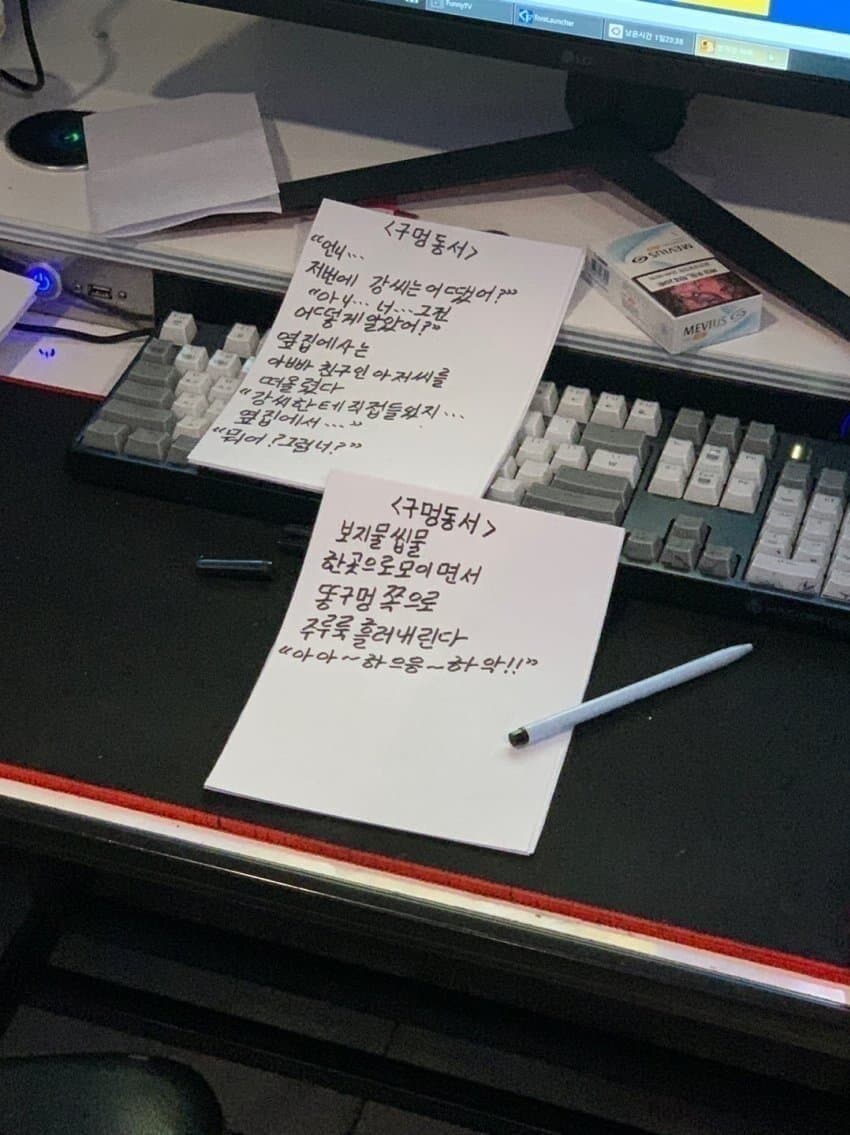 FunnyTV
LG
남은시간 1일20:38
<구멍동서>
“언니...
저번에 강씨는 어땠어?”
“아니... 너... 그건
어떻게 알았어?”
옆집에사는
아빠친구인 아저씨를
떠올렸다
“강씨한테 직접들었지...
옆집에서...”
“뭐어? 그럼너?”
MEVIUS
MEVIUS
<구멍동서>
보지물씹물
한곳으로모이면서
똥구멍 쪽으로
주루룩 흘러내린다
“아아~하으응~하악!!”